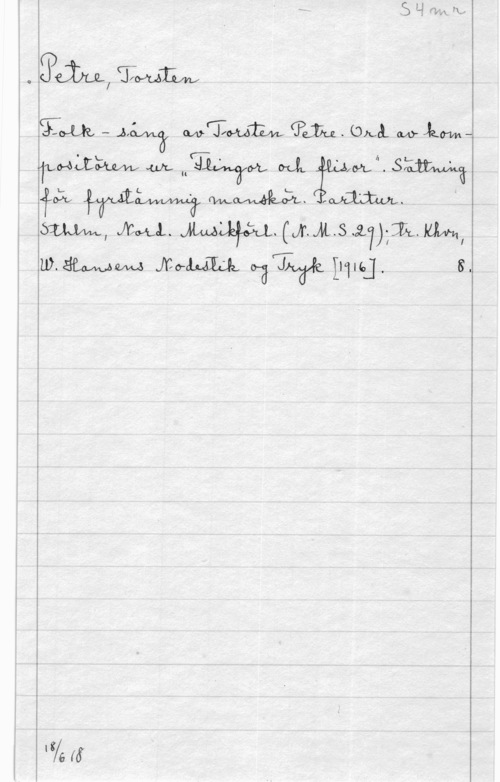 S4mr
Petre, Torsten
Folk-sång av Torsten Petre. Ord av kom-
positören ur „Flingor och flisor". Sättning
för fyrstämmig manskör. Partitur.
Sthlm, Nord. Musikförl. (N.M.S.29); Tr. Khvn,
W. Hansens Nodestik og Tryk [1916]. 8.
18/6 18